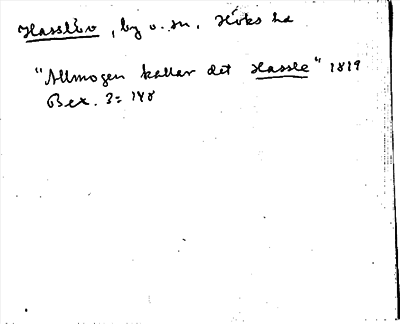 Hasslöv, by o. sn, Höks hd
"Allmogen kallar det Hassle" 1819
Bex. 3:148